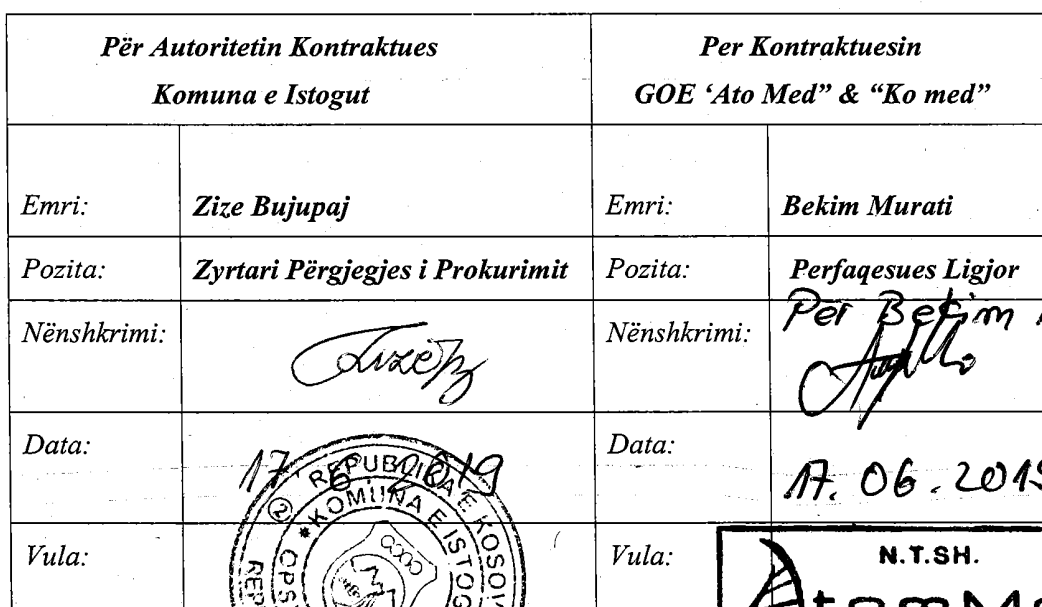 Për Autoritetin Kontraktues
Komuna e Istogut
Per Kontraktuesin
GOE ‘Ato Med” & “Ko med”
Emri: Zize Bujupaj
Emri: Bekim Murati
Pozita: Zyrtari Përgjegjes i Prokurimit
Pozita: Perfaqesues Ligjor
Nënshkrimi:
Nënshkrimi: Per Bekim
Data: 17 6 2019
Data: 17. 06. 2019
Vula: REPUBLIKA E KOSO
KOMUNA E ISTOG
Vula: N.T.SH.